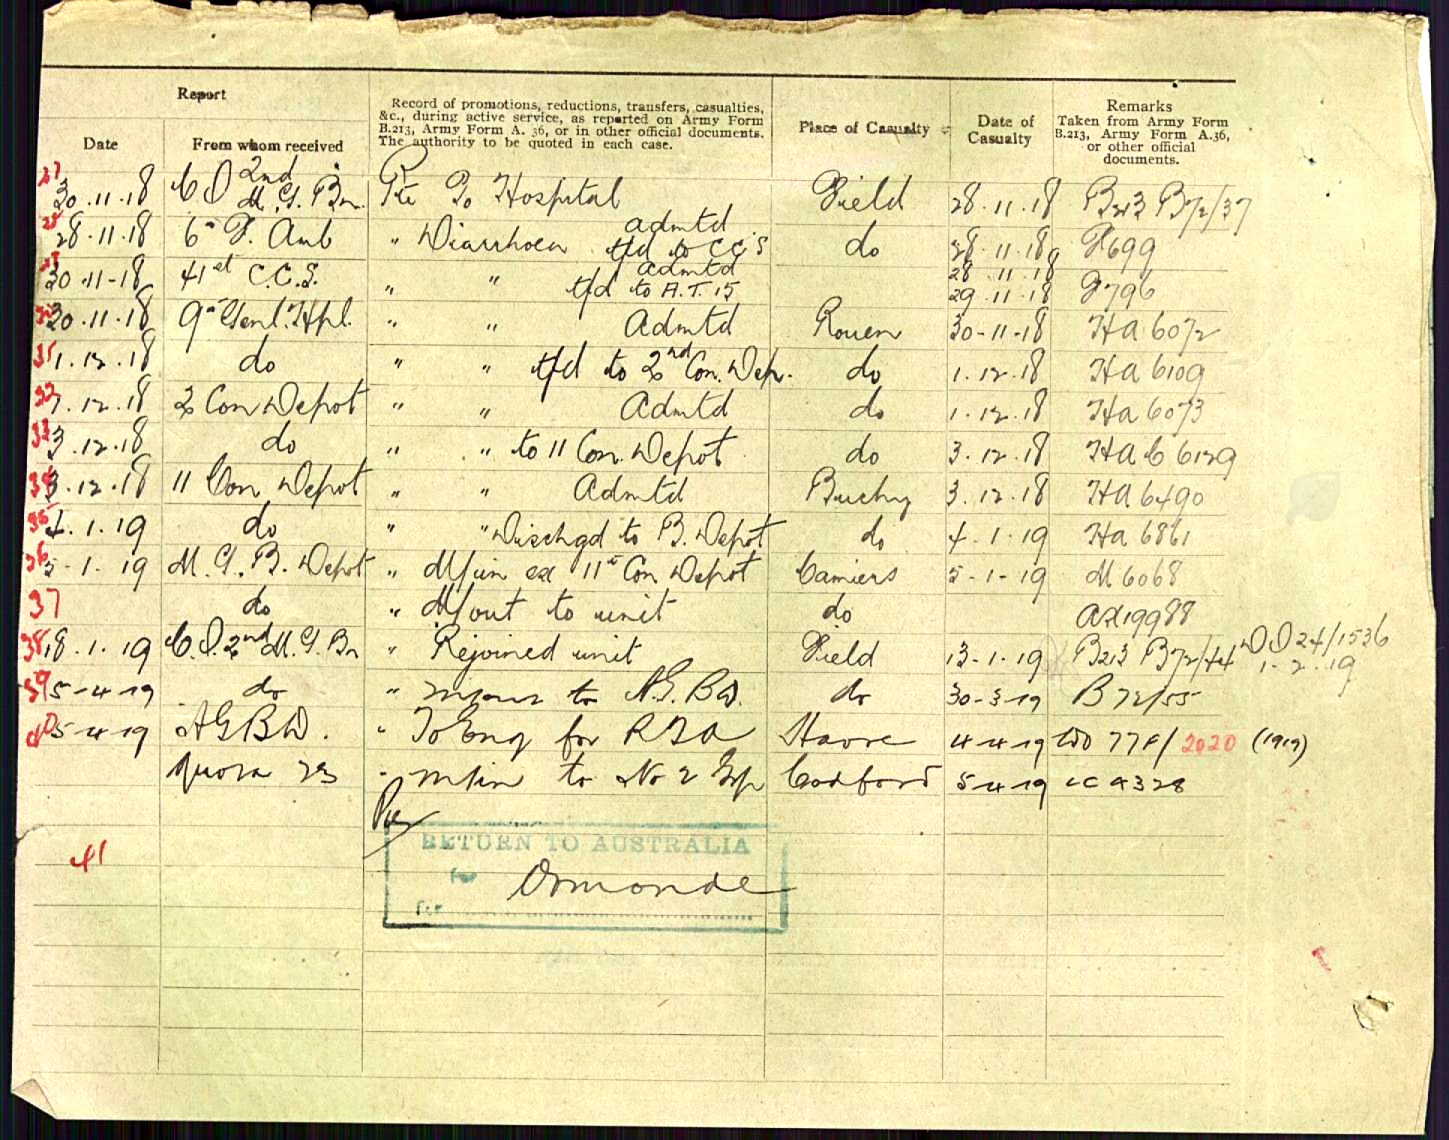 Report
Record of promotions, reductions, transfers, casualties,
&c., during active service, as reported on Army Form
B.213, Army Form A. 36, or in other official documents.
The authority to be quoted in each case.
Place of Casualty
Date of
Casualty
Remarks
Taken from Army Form
B.213, Army Form A.36,
or other official
documents.
Date
From whom received
27 30.11.18 C O 2nd M.G. Bn. Pte To Hospital Field 28.11.18 B213 B72/37
28.11.18 6th F. Amb " Diarrhoea admtd tfd to CC'S do 28.11.18 F699
30.11-18 41st C.C.S. " " admtd 28.11.18
tfd to A.T. 15 29.11.18 F796
30.11.18 9th Genl. Hpl. " " Admtd Rouen 30-11-18 HA 6072
31 1.12.18 do " " tfd to 2nd Con. Dep. do 1.12.18 HA 6109
32 1.12.18 2 Con Depot " " Admtd do 1.12.18 HA 6073
33 3.12.18 do " " to 11 Con. Depot do 3.12.18 HA C 6129
34 3.12.18 11 Con Depot " " Admtd Buchy 3.12.18 HA 6490
35 4.1.19 do " " Dischgd to B. Depot do 4.1.19 HA 6861
36 5-1.19 M.G.B. Depot " M/in ex 11th Con Depot Camiers 5-1-19 M 6068
37 do " M/out to unit do AX19988
38 18.1.19 C.O. 2nd M.G. Bn " Rejoined unit Field 13-1-19 B213 B72/44 DO 24/1536
1-2-19
39 5-4-19 do " to A.G. BD. do 30-3-19 B72/55
40 5-4-19 AGBD. " To Eng for RTA Havre 4-4-19 WO 77F/2020 (1919)
" m/in to No 2 Grp Codford 5-4-19 4328
RETURN TO AUSTRALIA
41
Ormonde
Per